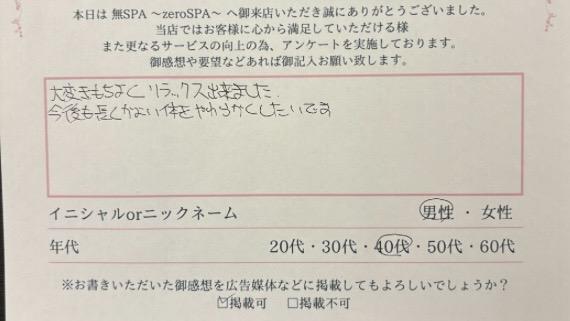 本日は 無SPA ～zeroSPA～ へ御来店いただき誠にありがとうございました。
当店ではお客様に心から満足していただける様
また更なるサービスの向上の為、アンケートを実施しております。
御感想や要望などあれば御記入お願い致します。
大変きもちよくリラックス出来ました.
今後も長くかよい体をやわらかくしたいです
イニシャルorニックネーム 男性 ・ 女性
年代 20代・30代・40代・50代・60代
※お書きいただいた御感想を広告媒体などに掲載してもよろしいでしょうか？
☑掲載可 ☐掲載不可